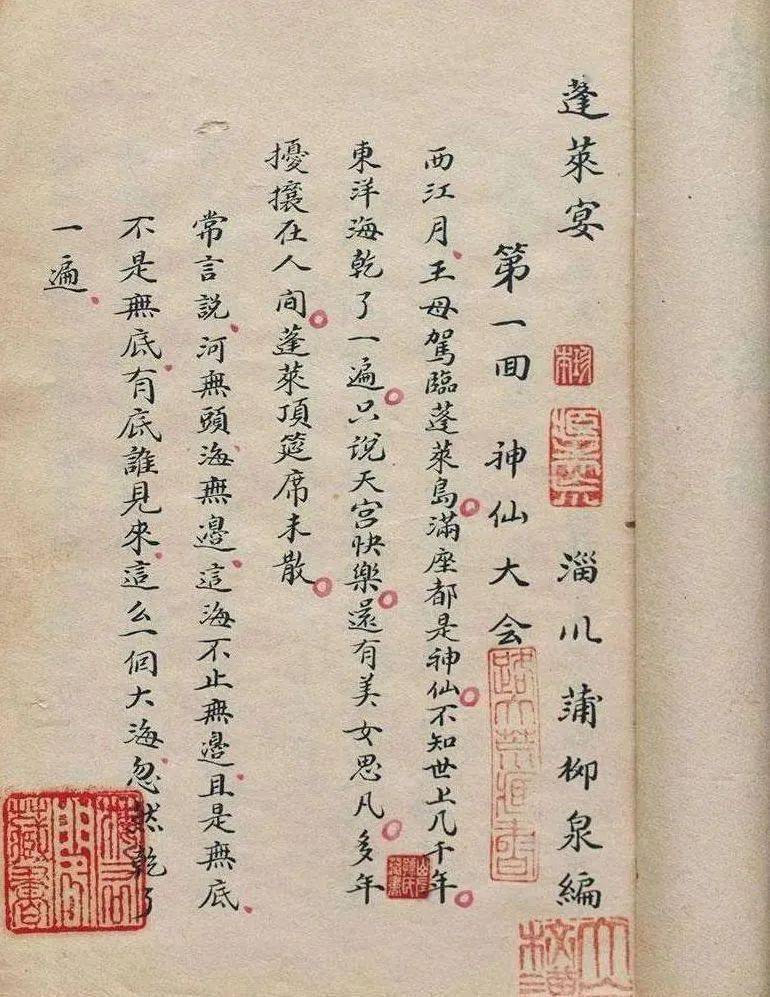 蓬萊宴 淄川蒲柳泉編
第一回 神仙大会
西江月、王母駕臨蓬萊島。滿座都是神仙。不知世上几千年。
東洋海乾了一遍。只说天宫快樂。還有美女思凡。多年
擾攘在人间。蓬萊頂筵席未散。
常言説、河無頭、海無邊、這海不止無邊、且是無底、
不是無底、有底誰見來、這么一個大海、忽然乾了
一遍、